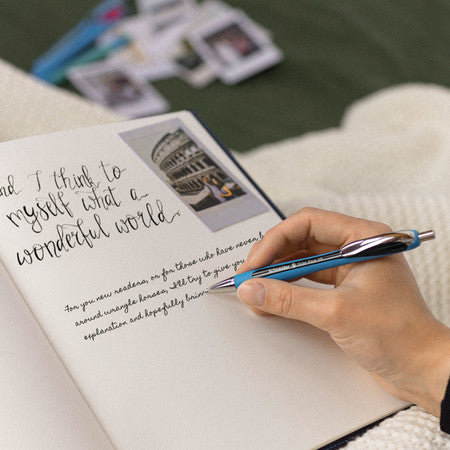 nd I think to
myself what a
wonderful world
For you new readers, or for those who have never b
around wrangle horses, I'll try to give you
explanation and hopefully brin